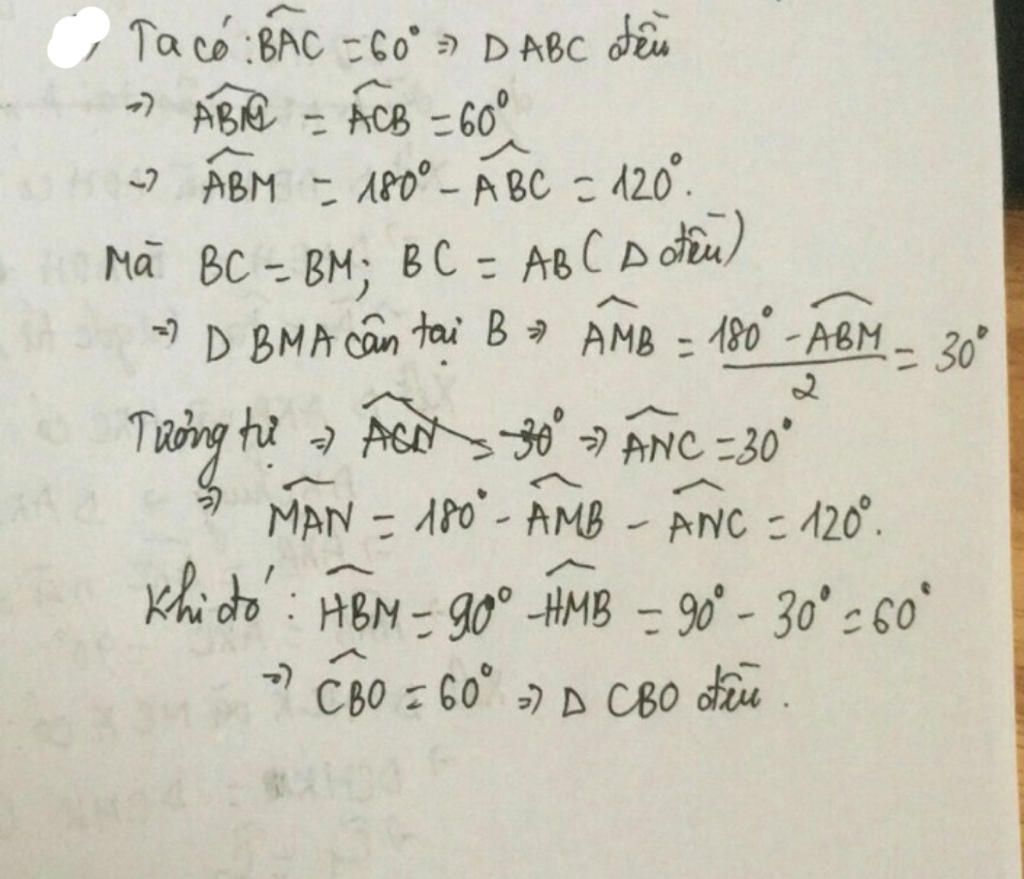 ) Ta có : BAC = 60° => D ABC đều
=> ABC = ACB = 60°
=> ABM = 180° - ABC = 120°.
Mà BC = BM; BC = AB ( Δ đều)
=> D BMA cân tại B => AMB = (180° - ABM)/2 = 30°
Tương tự => ACN = 30° => ANC = 30°
=> MAN = 180° - AMB - ANC = 120°.
Khi đó : HBM = 90° - HMB = 90° - 30° = 60°
=> CBO = 60° => Δ CBO đều .